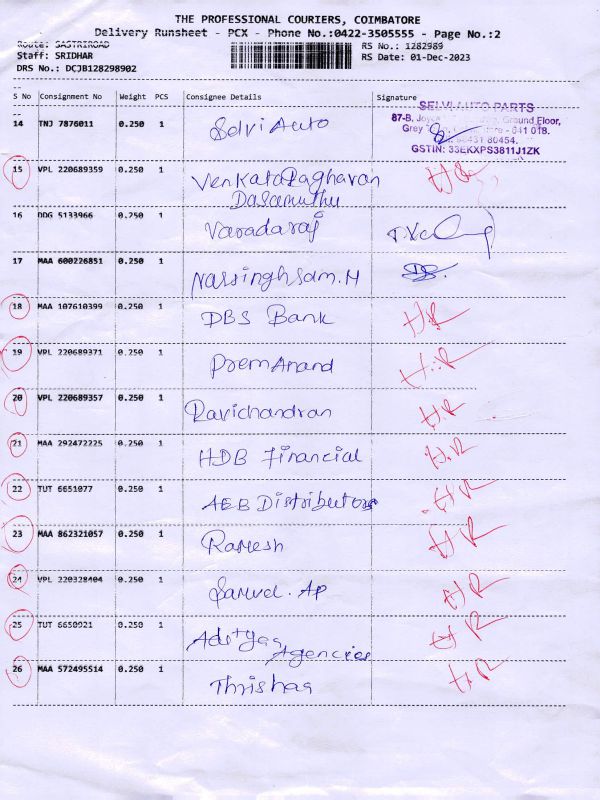 THE PROFESSIONAL COURIERS, COIMBATORE
Delivery Runsheet - PCX - Phone No.:0422-3505555 - Page No.:2
Route: SASTRIROAD
Staff: SRIDHAR
DRS No.: DCJB128298902
RS No.: 1282989
RS Date: 01-Dec-2023
S No Consignment No Weight PCS Consignee Details Signature
14 TNJ 7876011 0.250 1 Selvi Auto
SELVI AUTO PARTS
87-B, Ground Floor,
Grey 641 018.
98431 80454.
GSTIN: 33EKXPS3811J1ZK
15 VPL 220689359 0.250 1 VenkataRaghavan
Dasamuthu
16 DDG 5133966 0.250 1 Varadaraj
17 MAA 600226851 0.250 1 Narsinghsam.M
18 MAA 107610399 0.250 1 DBS Bank H.R
19 VPL 220689371 0.250 1 PremAnand H.R
20 VPL 220689357 0.250 1 Ravichandran H.R
21 MAA 292472225 0.250 1 HDB Financial H.R
22 TUT 6651077 0.250 1 AEB Distributors H.R
23 MAA 862321057 0.250 1 Ramesh H R
24 VPL 220328404 0.250 1 Samuel. AP H R
25 TUT 6650921 0.250 1 Adityaa
Agencies H R
26 MAA 572495514 0.250 1 Thrishaa H.R